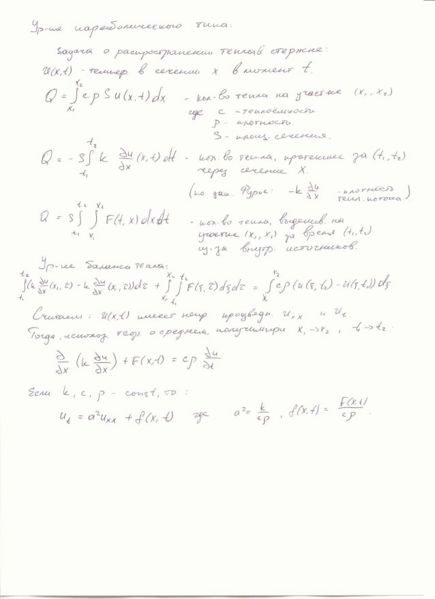 Ур-ие параболического типа:
Задача о распространении тепла в стержне:
U(x,t) - темпер в сечении x в момент t.
Q = ∫_{x₁}^{x₂} c ρ S u(x,t) dx - кол-во тепла на участке (x₁, x₂)
где c - теплоёмкость
ρ - плотность
S - площ. сечения.
Q = - S ∫_{t₁}^{t₂} k ∂u/∂x (x,t) dt - кол-во тепла, протекшее за (t₁,t₂)
через сечение X.
(по зак. Фурье: -k ∂u/∂x - плотность
тепл. потока)
Q = S ∫_{t₁}^{t₂} ∫_{x₁}^{x₂} F(t,x) dx dt - кол-во тепла, выделив на
участке (x₁,x₂) за время (t₁,t₂)
из-за внутр. источников.
Ур-ие баланса тепла:
∫_{t₁}^{t₂} (k ∂u/∂x (x₂,τ) - k ∂u/∂x (x₁,τ)) dτ + ∫_{x₁}^{x₂} ∫_{t₁}^{t₂} F(ξ,τ) dξ dτ = ∫_{x₁}^{x₂} cρ (u(ξ,t₂) - u(ξ,t₁)) dξ
Считаем: U(x,t) имеет непр производн. Uₓₓ и Uₜ
Тогда, использ. теор. о среднем, получим при x₁→x₂, t₁→t₂:
∂/∂x (k ∂u/∂x) + F(x,t) = cρ ∂u/∂t
Если k, c, ρ - const, то:
uₜ = a²uₓₓ + f(x,t) где a² = k/cρ, f(x,t) = F(x,t)/cρ.